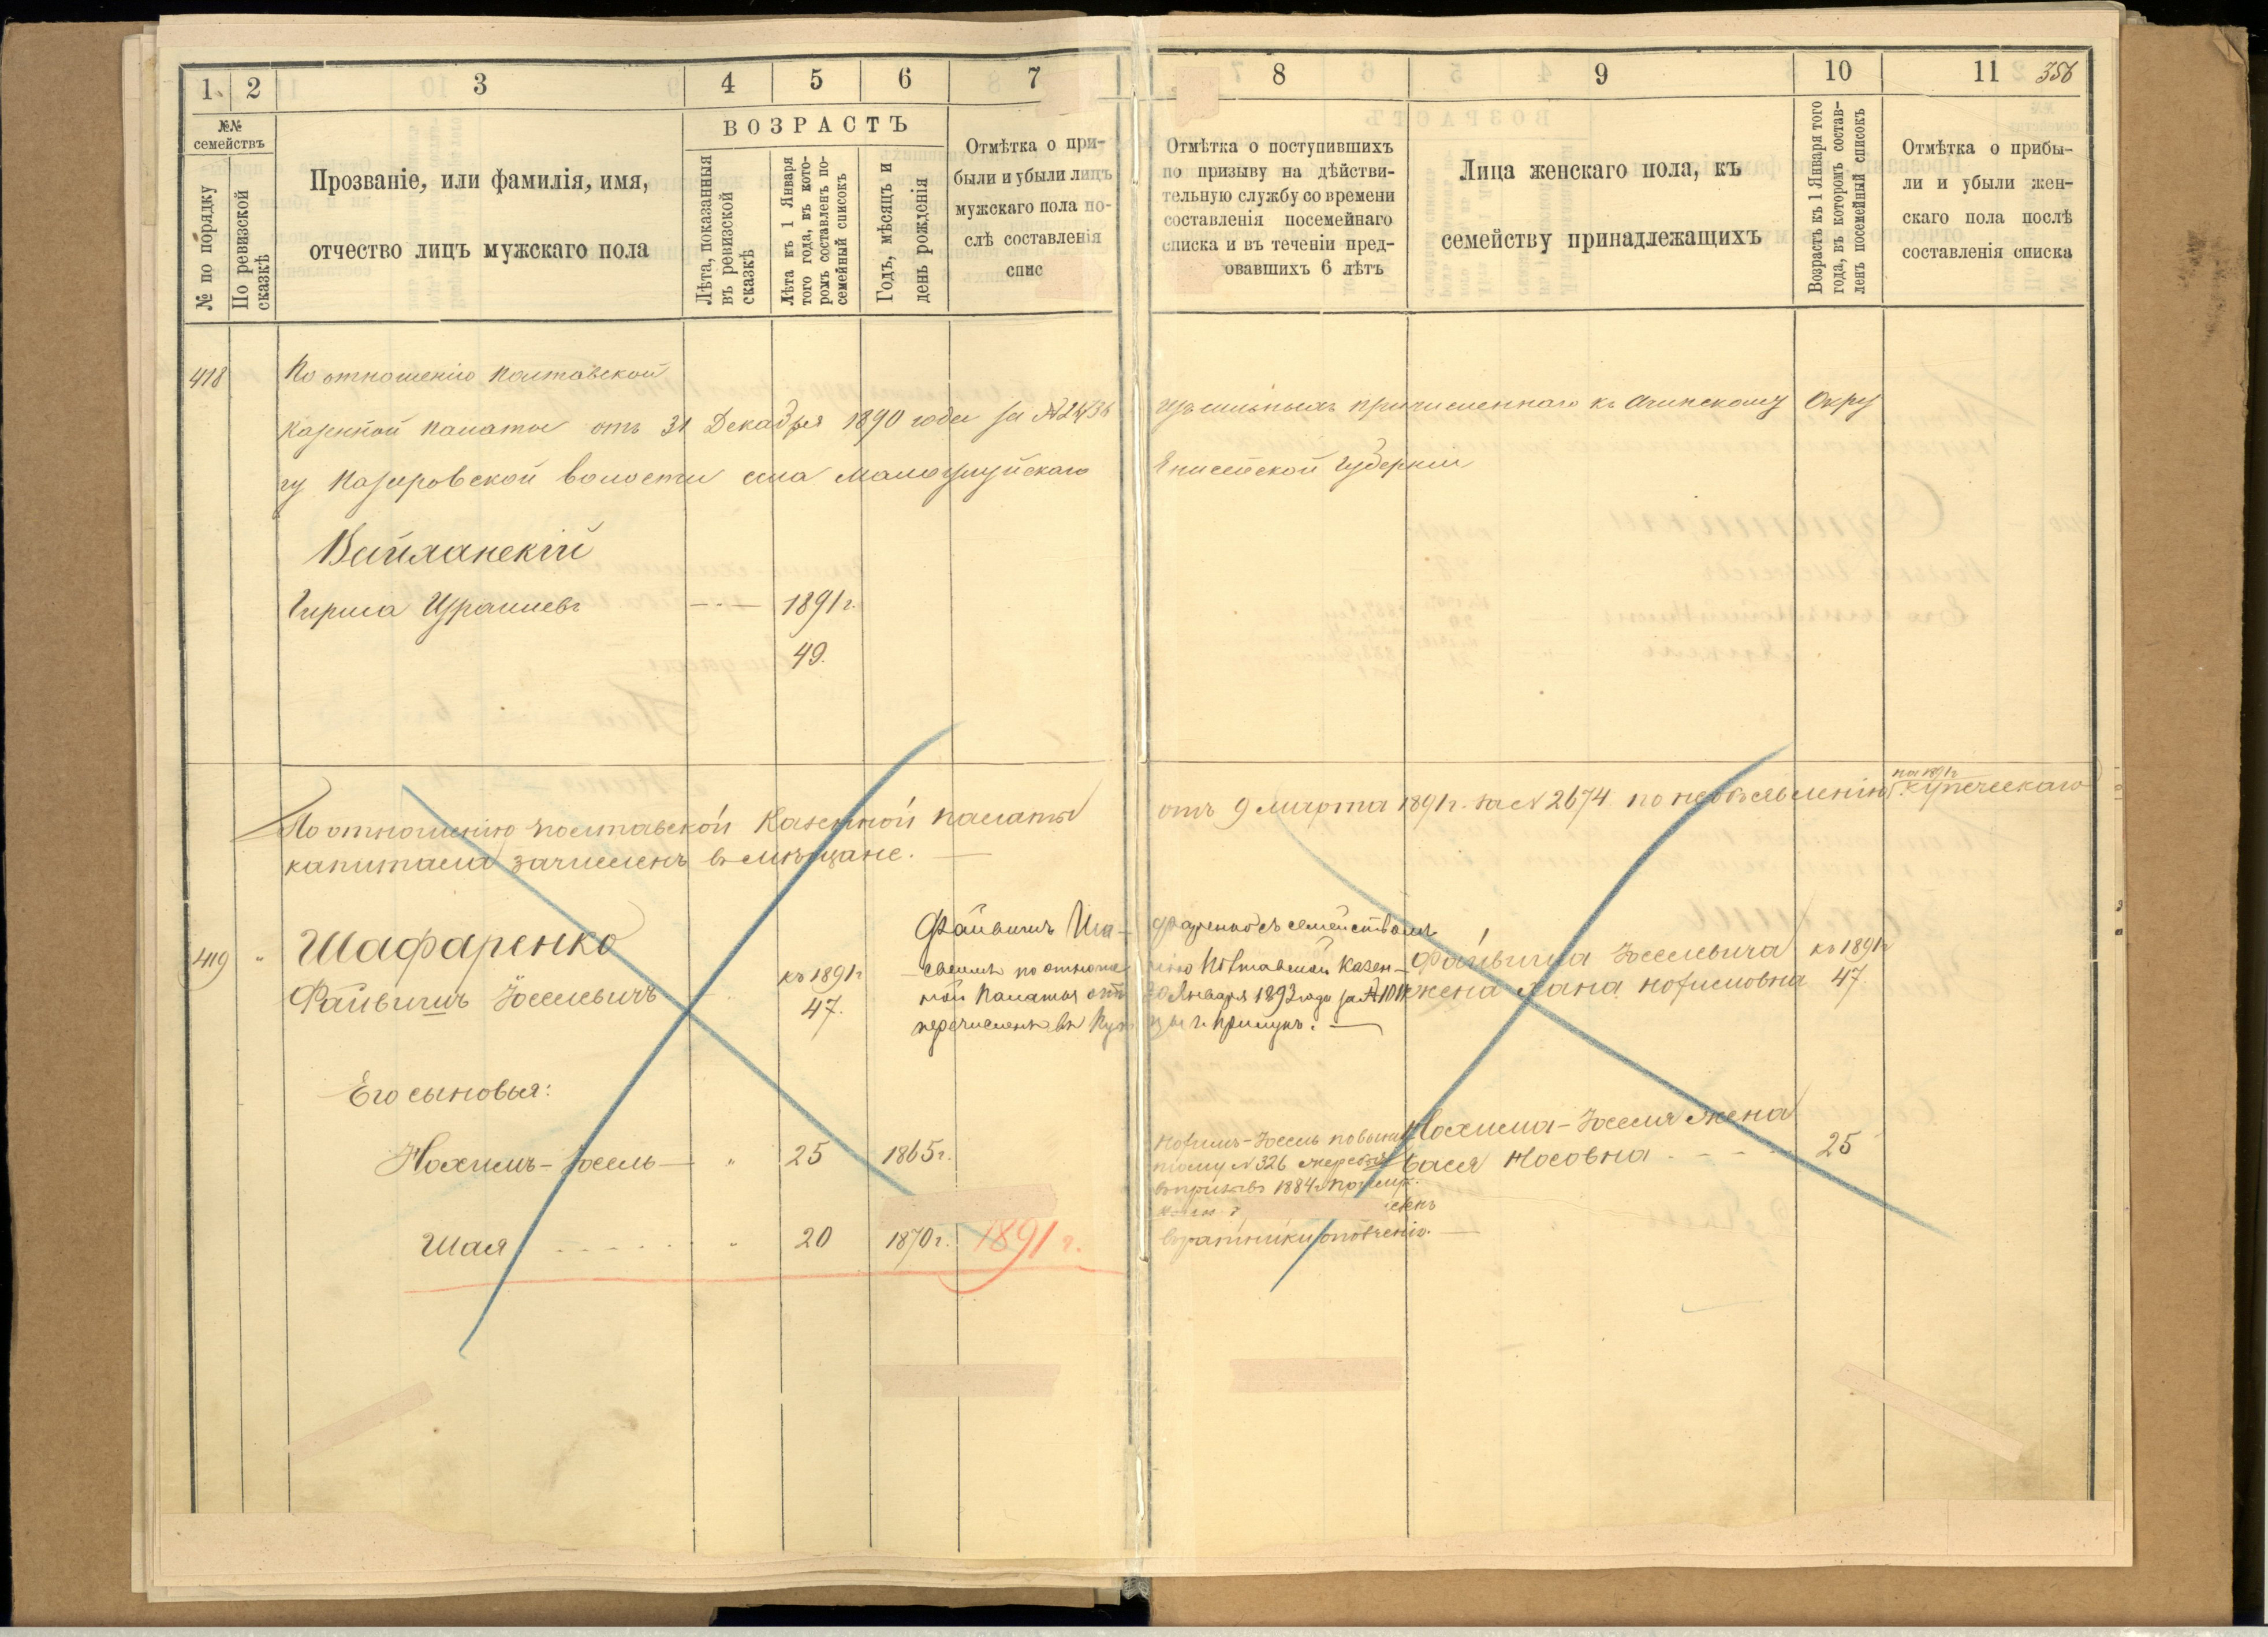 1 2 3 4 5 6 7
№№ семействъ
№ по порядку
По ревизской сказкѣ
Прозваніе, или фамилія, имя,
отчество лицъ мужскаго пола
ВОЗРАСТЪ
Лѣта, показанныя
въ ревизской
сказкѣ
Лѣта къ 1 Января
того года, въ кото-
ромъ составленъ по-
семейный списокъ
Годъ, мѣсяцъ и
день рожденія
Отмѣтка о при-
были и убыли лицъ
мужскаго пола по-
слѣ составленія
спис
8 9 10 11 356
Отмѣтка о поступившихъ
по призыву на дѣйстви-
тельную службу со времени
составленія посемейнаго
списка и въ теченіи пред-
овавшихъ 6 лѣтъ
Лица женскаго пола, къ
семейству принадлежащихъ
Возрастъ къ 1 Января того
года, въ которомъ состав-
ленъ посемейный списокъ
Отмѣтка о прибы-
ли и убыли жен-
скаго пола послѣ
составленія списка
418 По отношенію Полтавской
Казенной палаты отъ 31 Декабря 1890 года за № причисленнаго къ Ачинскому Окру
гу Назаровской волости села Малоулуйскаго Енисейской Губерніи
Гирша Израилевъ 1891 г.
49.
По отношенію полтавской Казенной палаты отъ 9 марта 1891 г. за № 2674 по необъявленію на 1891 г. купеческаго
капитала, зачисленъ въ мѣщане.
419 " Шафаренко
Файвишъ Іоселевичъ къ 1891 г.
47.
Файвишъ Ша- фаренко съ семействомъ
своимъ по отноше нію Полтавской Казен-
ной Палаты отъ 20 Января 1893 года за №
перечисленъ въ Куп цы г. Прилукъ.
Файвиша Іоселевича къ 1891 г.
жена Хана Нохимовна 47.
Его сыновья:
Нохимъ-Іосель " 25 1865 г.
Нохимъ-Іосель по выну
тому № 326 жеребья
въ призывъ 1884 г.
въ ратники ополченія.
Нохима-Іоселя жена
Бася Носовна 25
Шая " 20 1870 г. 1891 г.